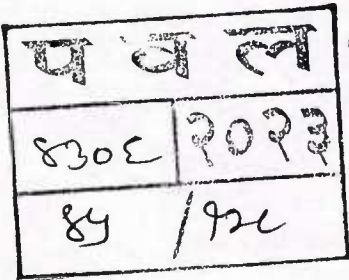 प व ल
४३०६ २०२३
४५ /